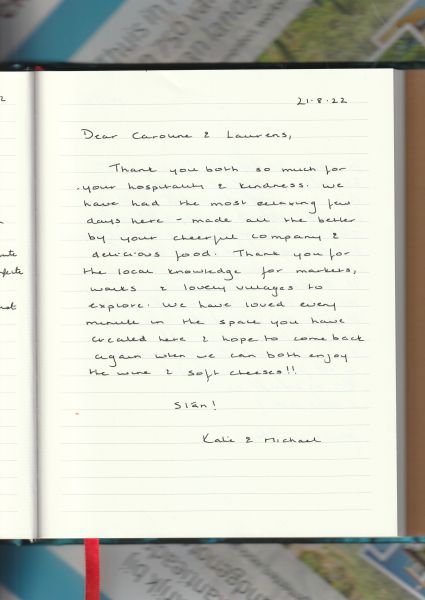 21·8·22
Dear Caroline & Laurens,
Thank you both so much for
your hospitality & kindness. We
have had the most relaxing few
days here - made all the better
by your cheerful company &
delicious food. Thank you for
the local knowledge for markets,
walks & lovely villages to
explore. We have loved every
minute in the space you have
created here & hope to come back
again when we can both enjoy
the wine & soft cheeses!!
Slán!
Katie & Michael